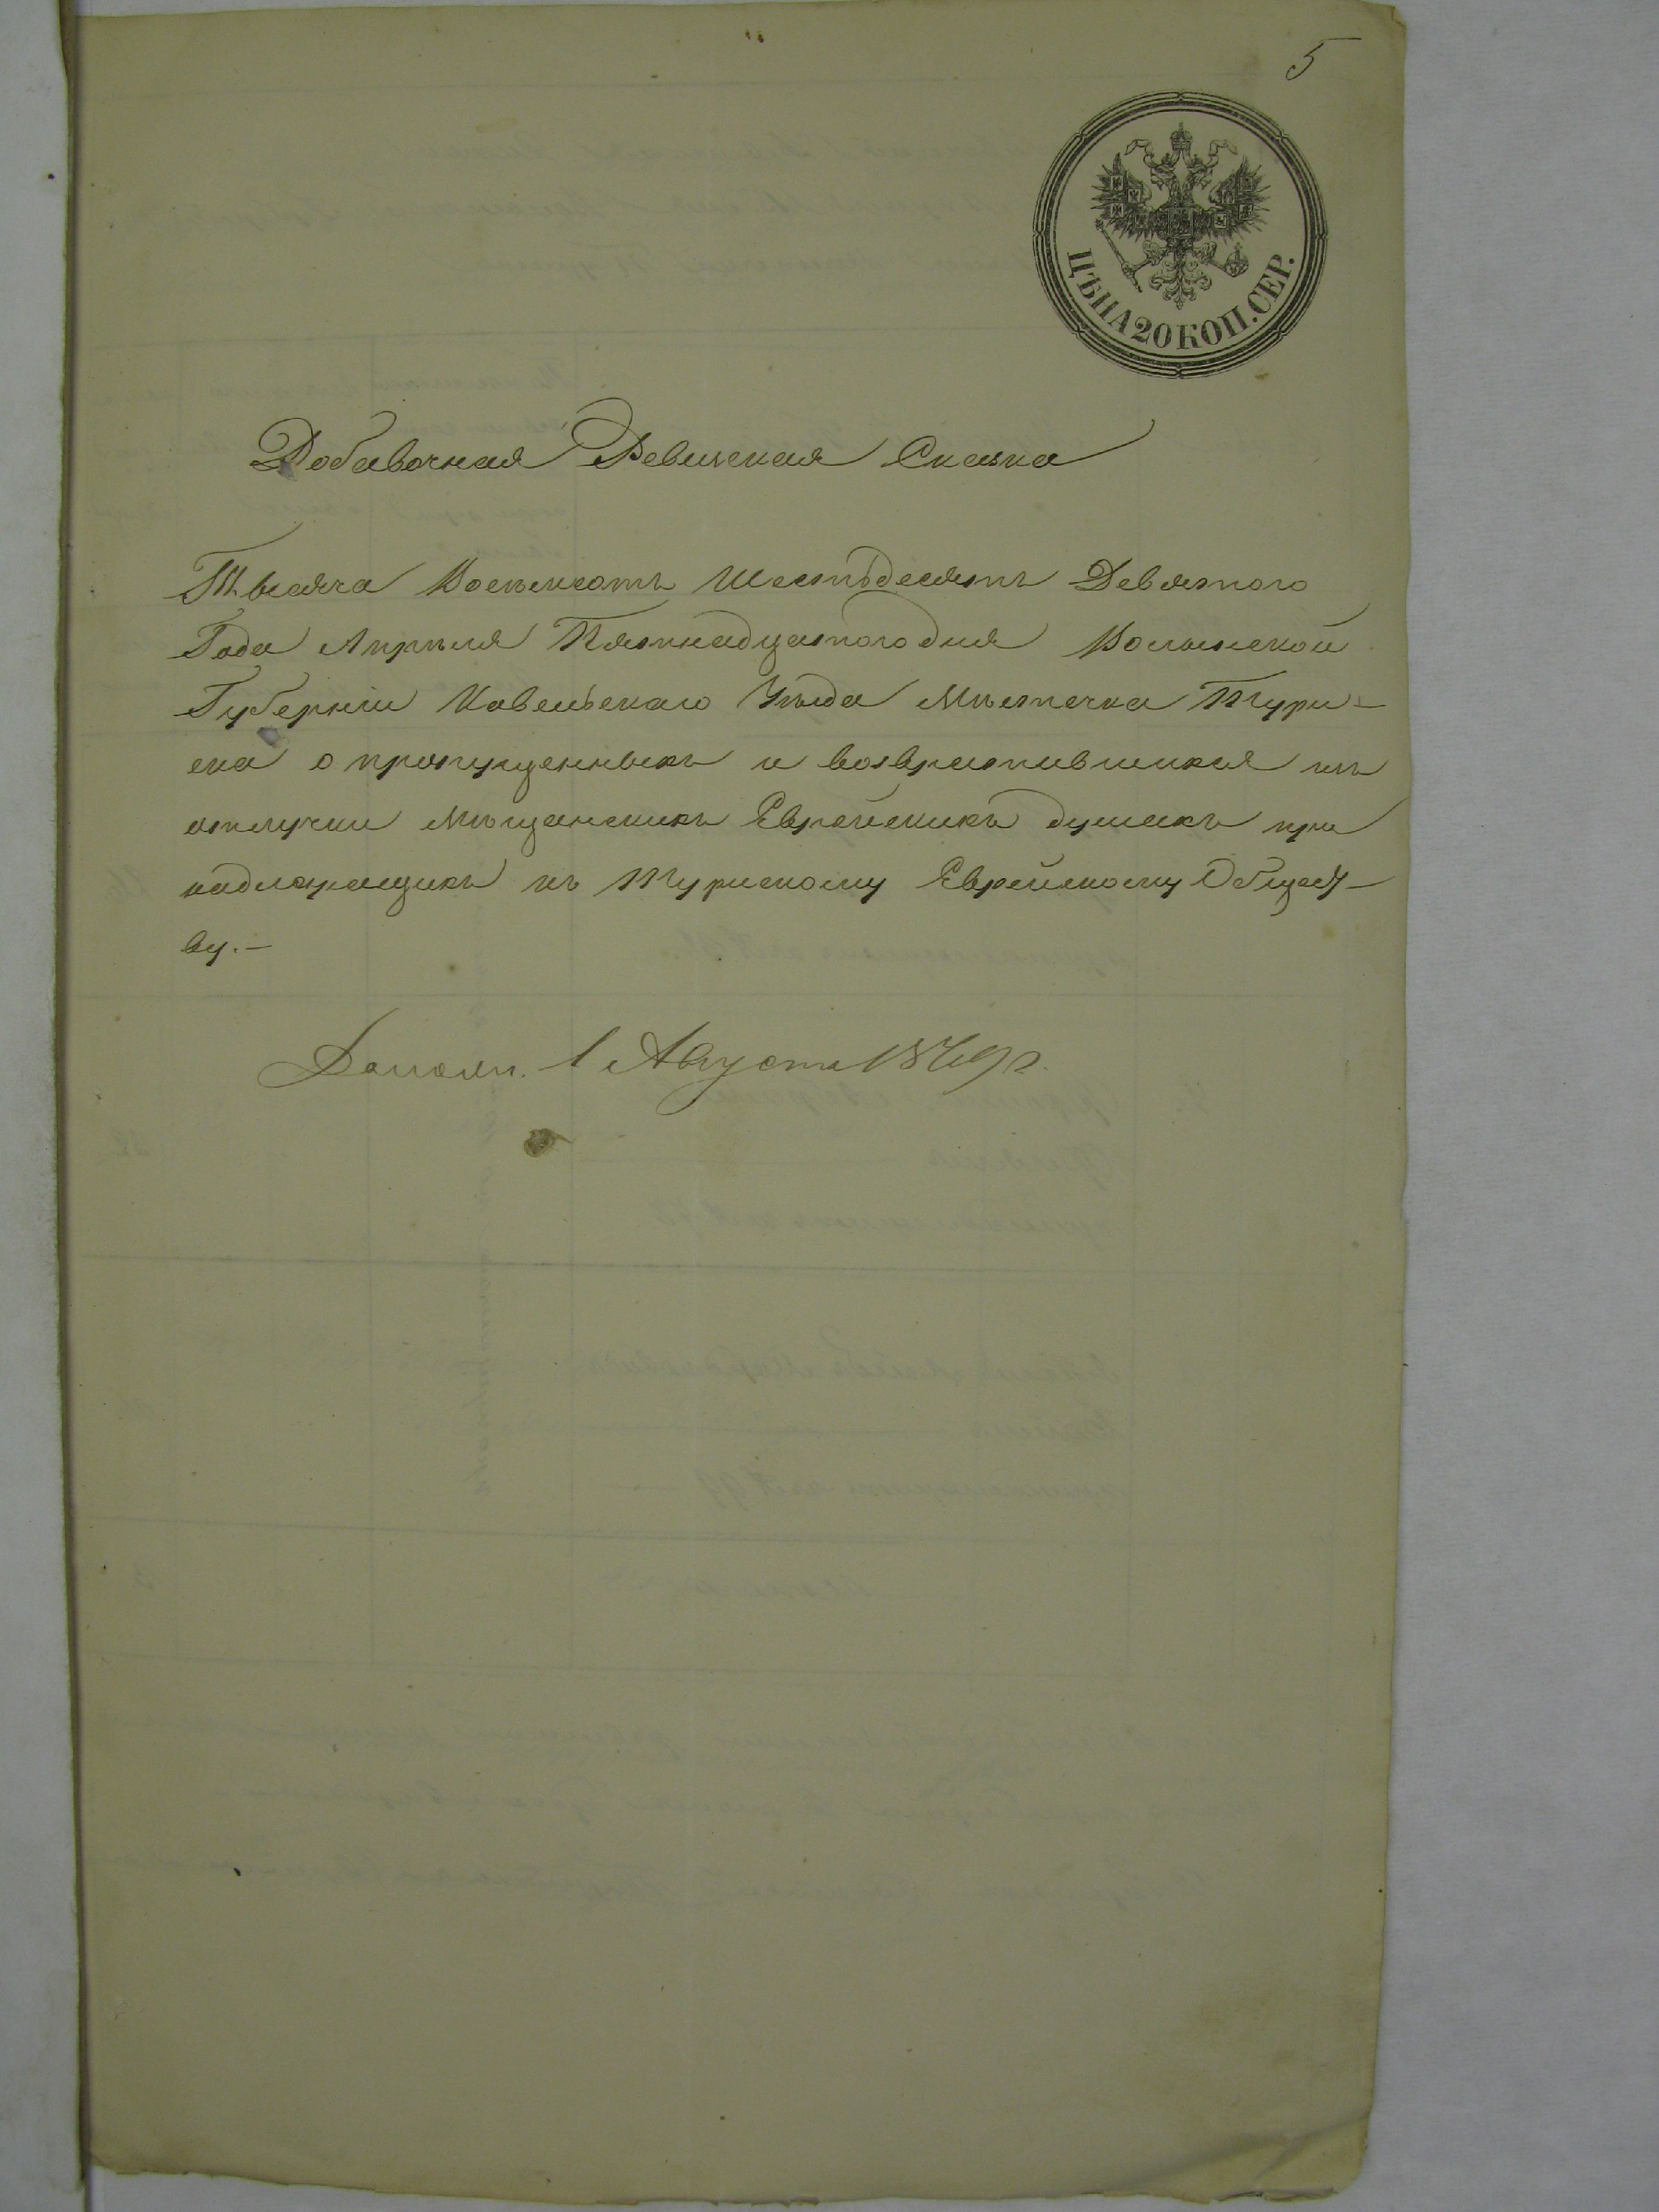 5
ЦѢНА 20 КОП. СЕР.
Добавочная Ревизская Сказка
Тысяча Восемсотъ Шестьдесятъ Девятого
Года Апрѣля Пятнадцатого дня Волынской
Губерніи Ковельскаго Уѣзда Мѣстечка Тури-
ска о пропущенныхъ и возвратившихся изъ
отлучки Мѣщанскихъ Еврейскихъ душахъ при
надлежащихъ къ Турискому Еврейскому Общест-
ву.-
1 Августа 1869 г.